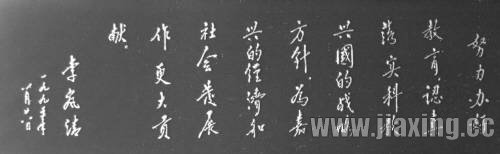 努力办好
教育認真
落实科教
興國的战略
方针，为嘉
兴的经濟和
社会發展
作更大贡
献。
李岚清
一九九五年
八月廿八日
www.jiaxing.cc